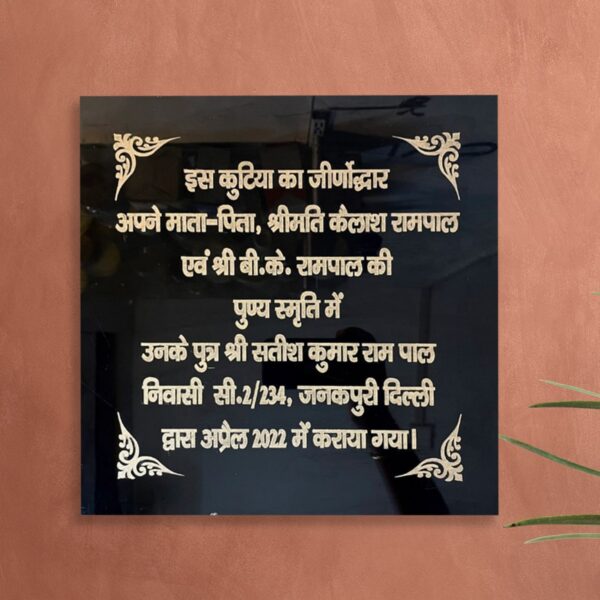 इस कुटिया का जीर्णोद्धार
अपने माता-पिता, श्रीमति कैलाश रामपाल
एवं श्री बी.के. रामपाल की
पुण्य स्मृति में
उनके पुत्र श्री सतीश कुमार राम पाल
निवासी सी.2/234, जनकपुरी दिल्ली
द्वारा अप्रैल 2022 में कराया गया।